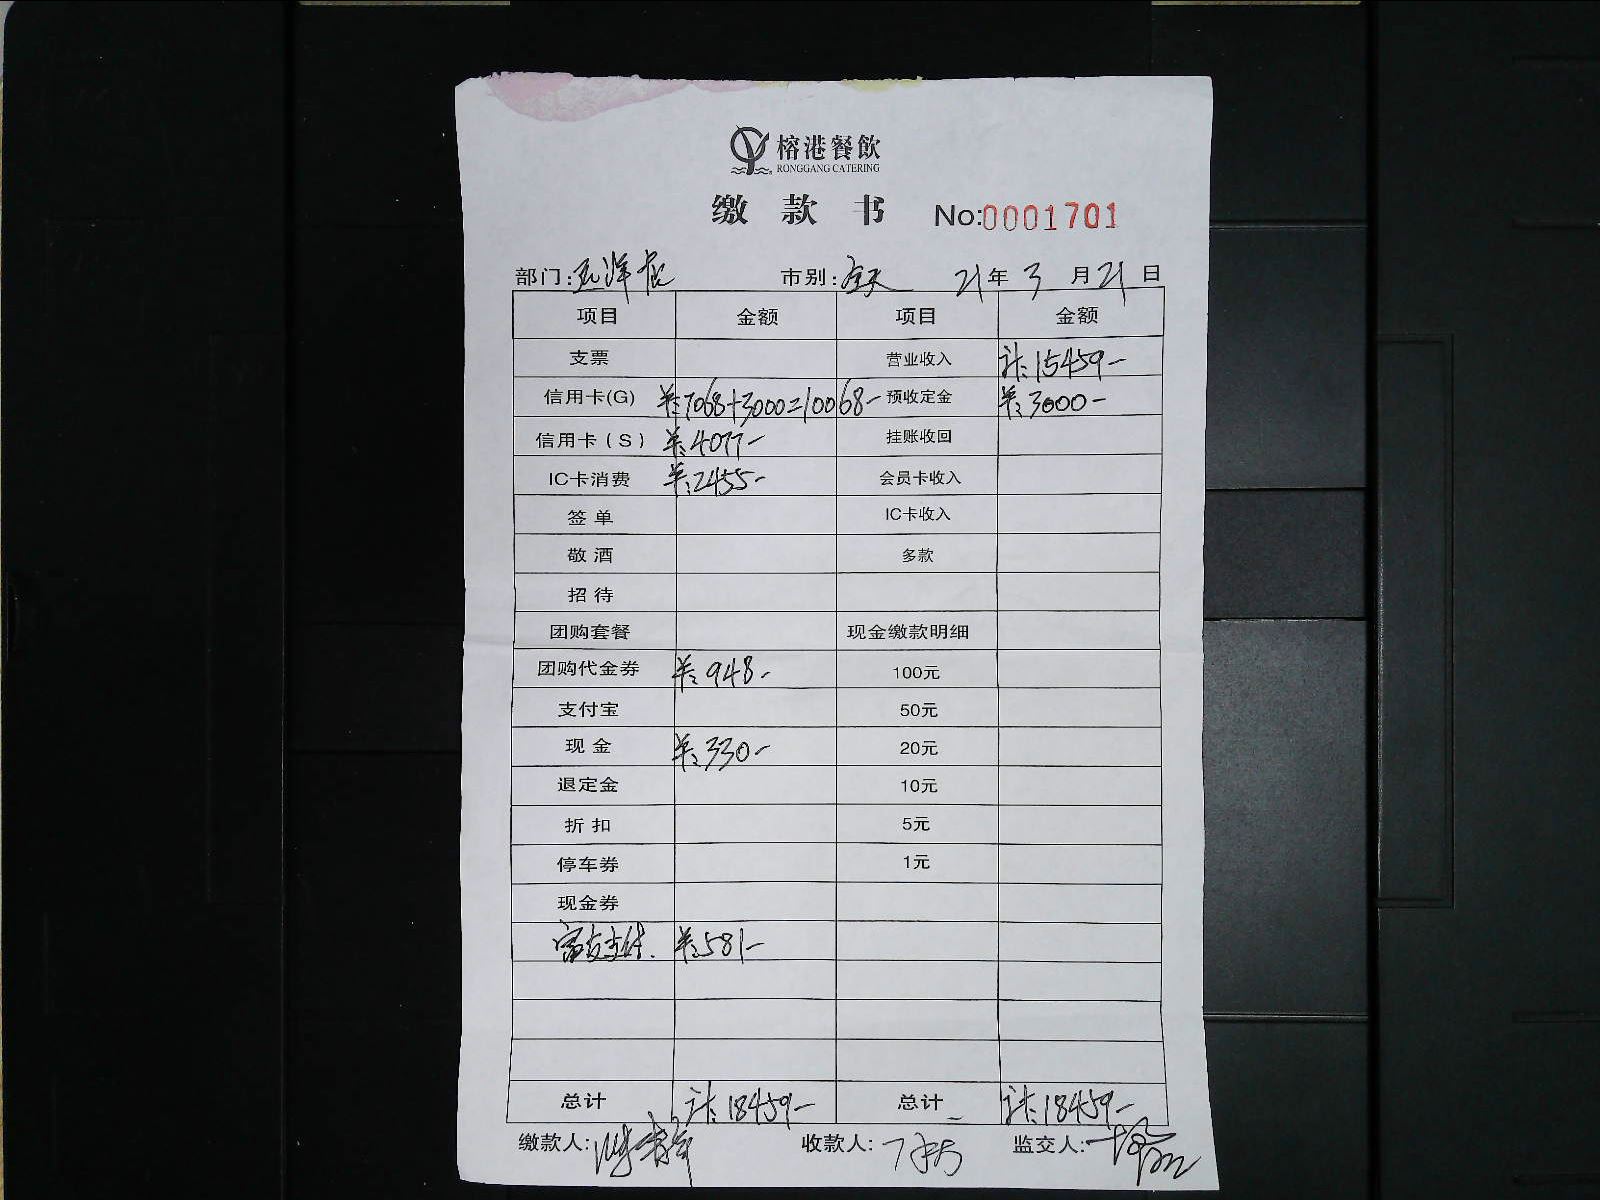 榕港餐飲
RONGGANG CATERING
缴款书 No:0001701
部门:五洋店 市别:全天 21年3月21日
项目 金额 项目 金额
支票 营业收入 计:15459-
信用卡(G) ¥:7068+3000=10068- 预收定金 ¥:3000-
信用卡(S) ¥:4077- 挂账收回
IC卡消费 ¥:2455- 会员卡收入
签单 IC卡收入
敬酒 多款
招待
团购套餐 现金缴款明细
团购代金券 ¥:948- 100元
支付宝 50元
现金 ¥:330- 20元
退定金 10元
折扣 5元
停车券 1元
现金券
富友支付. ¥:581-
总计 计:18459- 总计 计:18459-
缴款人: 收款人: 监交人: